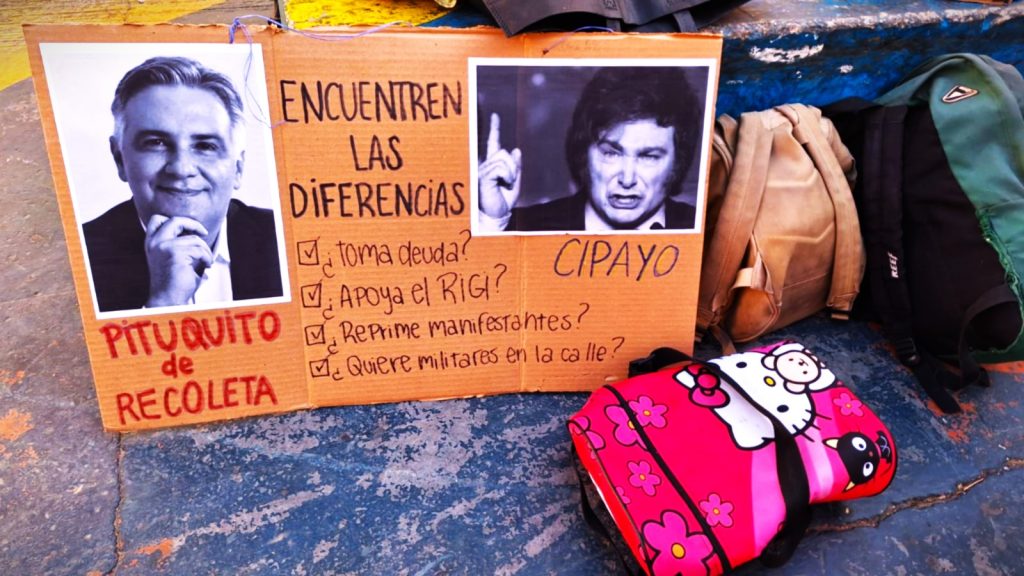 ENCUENTREN
LAS
DIFERENCIAS
¿Toma deuda?
¿Apoya el RIGI?
¿Reprime manifestantes?
¿Quiere militares en la calle?
PITUQUITO
de
RECOLETA
CIPAYO
REEF